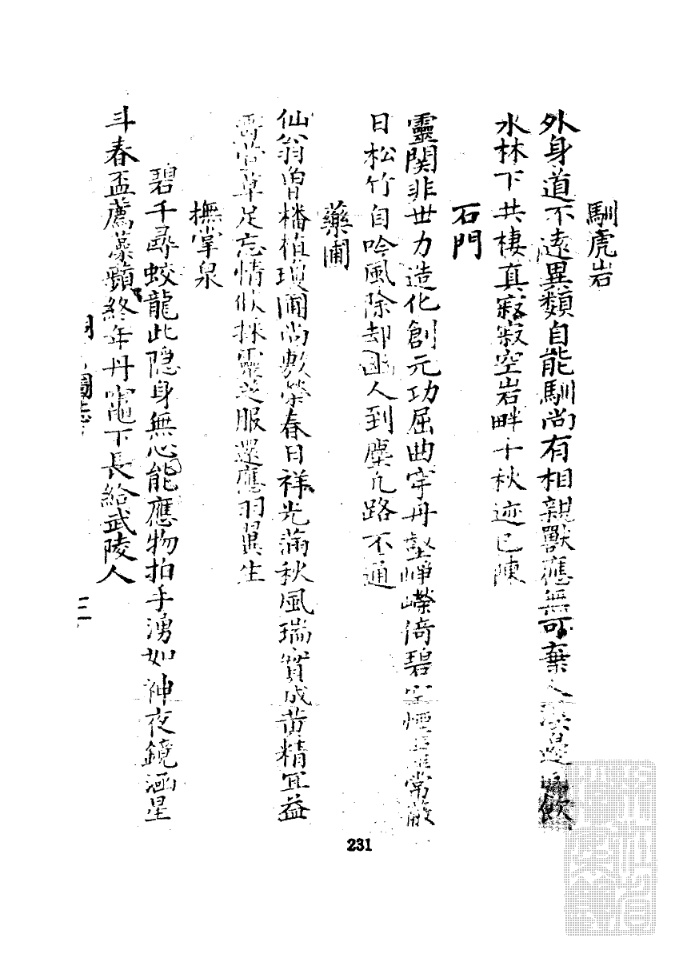 馴虎岩
外身道不遠異類自能馴尚有相親獸應無可棄人飲
水林下共棲真寂寂空岩畔千秋迹已陳
石門
靈関非世力造化創元功屈曲穿丹壑崢嶸倚碧空煙常蔽
日松竹自吟風除却幽人到塵凡路不通
藥圃
仙翁曽播植瓊圃尚敷榮春日祥光滿秋風瑞實成黄精宜益
壽萱草足忘情似採靈芝服還應羽翼生
撫掌泉
碧千尋蛟龍此隐身無心能應物拍手湧如神夜鏡涵星
斗春盃薦藻蘋終年丹竈下長給武陵人
圖志
三
231